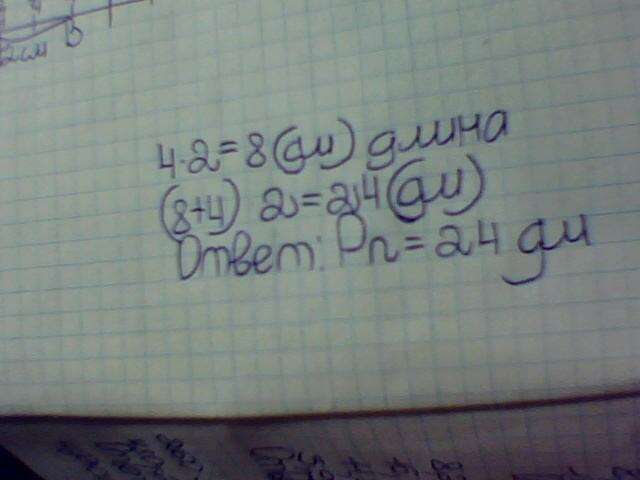 2см D
4·2=8(дм) длина
(8+4) 2=24(дм)
Ответ: Pп=24 дм